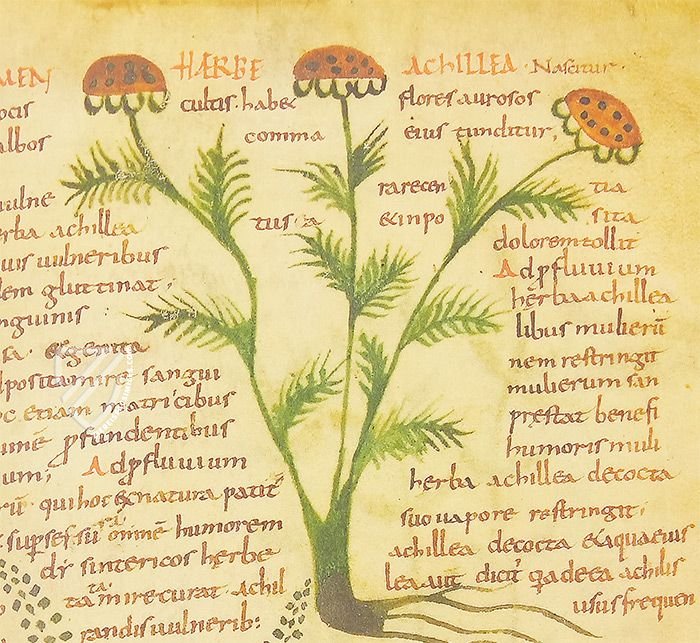 MEN HÆRBE ACHILLEA · Nascitur
ocis cultis · habet flores aurosos
albos comma eius tunditur,
vulne rarecen tia
erba achillea tus a & inpo sita
uis uulneribus dolorem tollit
em gluttinat, Ad pfluuium
nguinis herba achillea
sa · & genita libus mulierū
positamire sangui nem restringit
oc etiam matricibus mulierum san
umē pfundentibus pręstat benefi
um; Ad pfluuium humoris muli
rū qui hoc & natura patit herba achillea decocta
supses omnē humorem suo uapore restringit;
dr sintericos herbe achillea decocta & aquaeius
ta mire curat achil lea aut dicit' qa de ea achilis
randis uulnerib: usus frequen